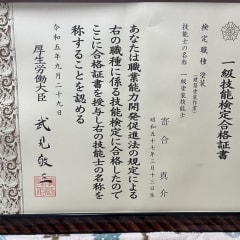 一級技能検定合格証書
検定職種 塗装
(建築塗装作業)
技能士の名称 一級塗装技能士
寄合 真介
昭和五十七年二月十二日生
あなたは職業能力開発促進法の規定による
右の職種に係る技能検定に合格したので
ここに合格証書を授与し右の技能士の名称を
称することを認める
令和五年九月二十九日
厚生労働大臣 武見敬三